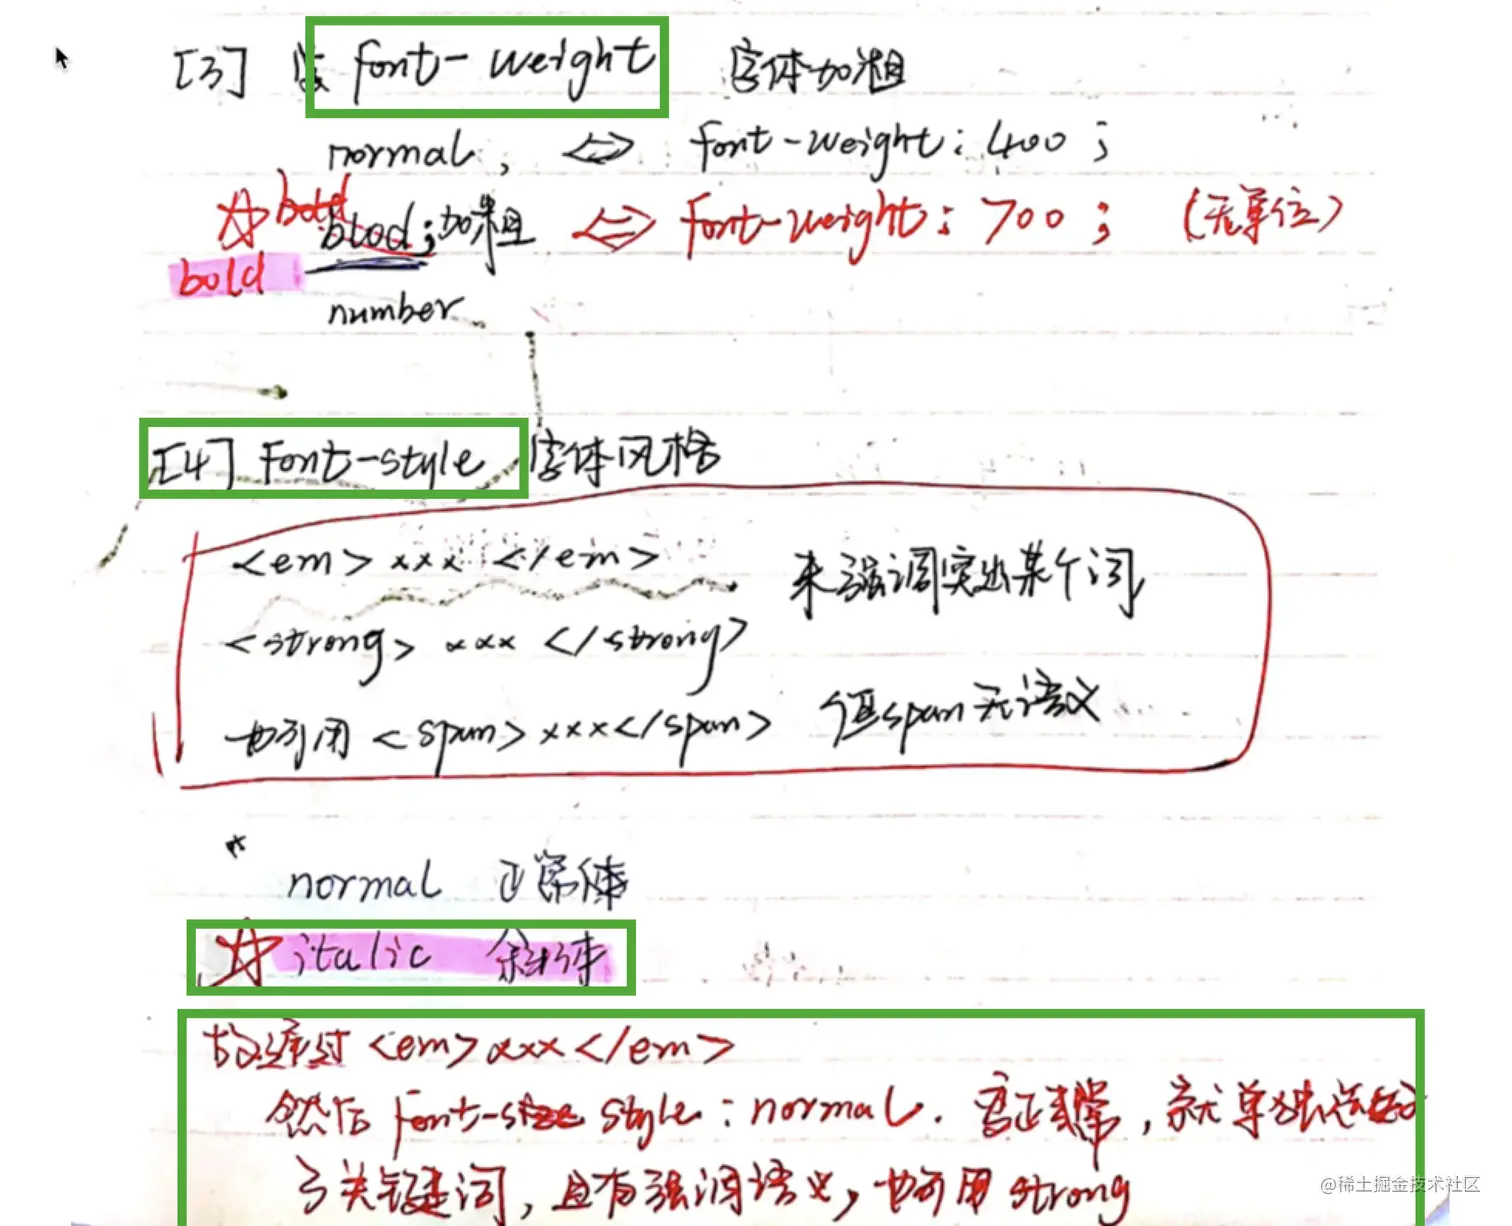 [3] font-weight 字体加粗
normal, <=> font-weight: 400 ;
bold
blod; 加粗 <=> font-weight: 700 ; (无单位)
bold
number
[4] Font-style 字体风格
<em> xxx </em> 来强调突出某个词
<strong> xxx </strong>
也可用 <span> xxx </span> 但span无语义
*
normal 正常体
italic 斜体
故通过 <em> xxx </em>
然后 font-size style : normal. 变正常, 就单独选
了关键词, 且有强调语义, 也可用 strong
@稀土掘金技术社区